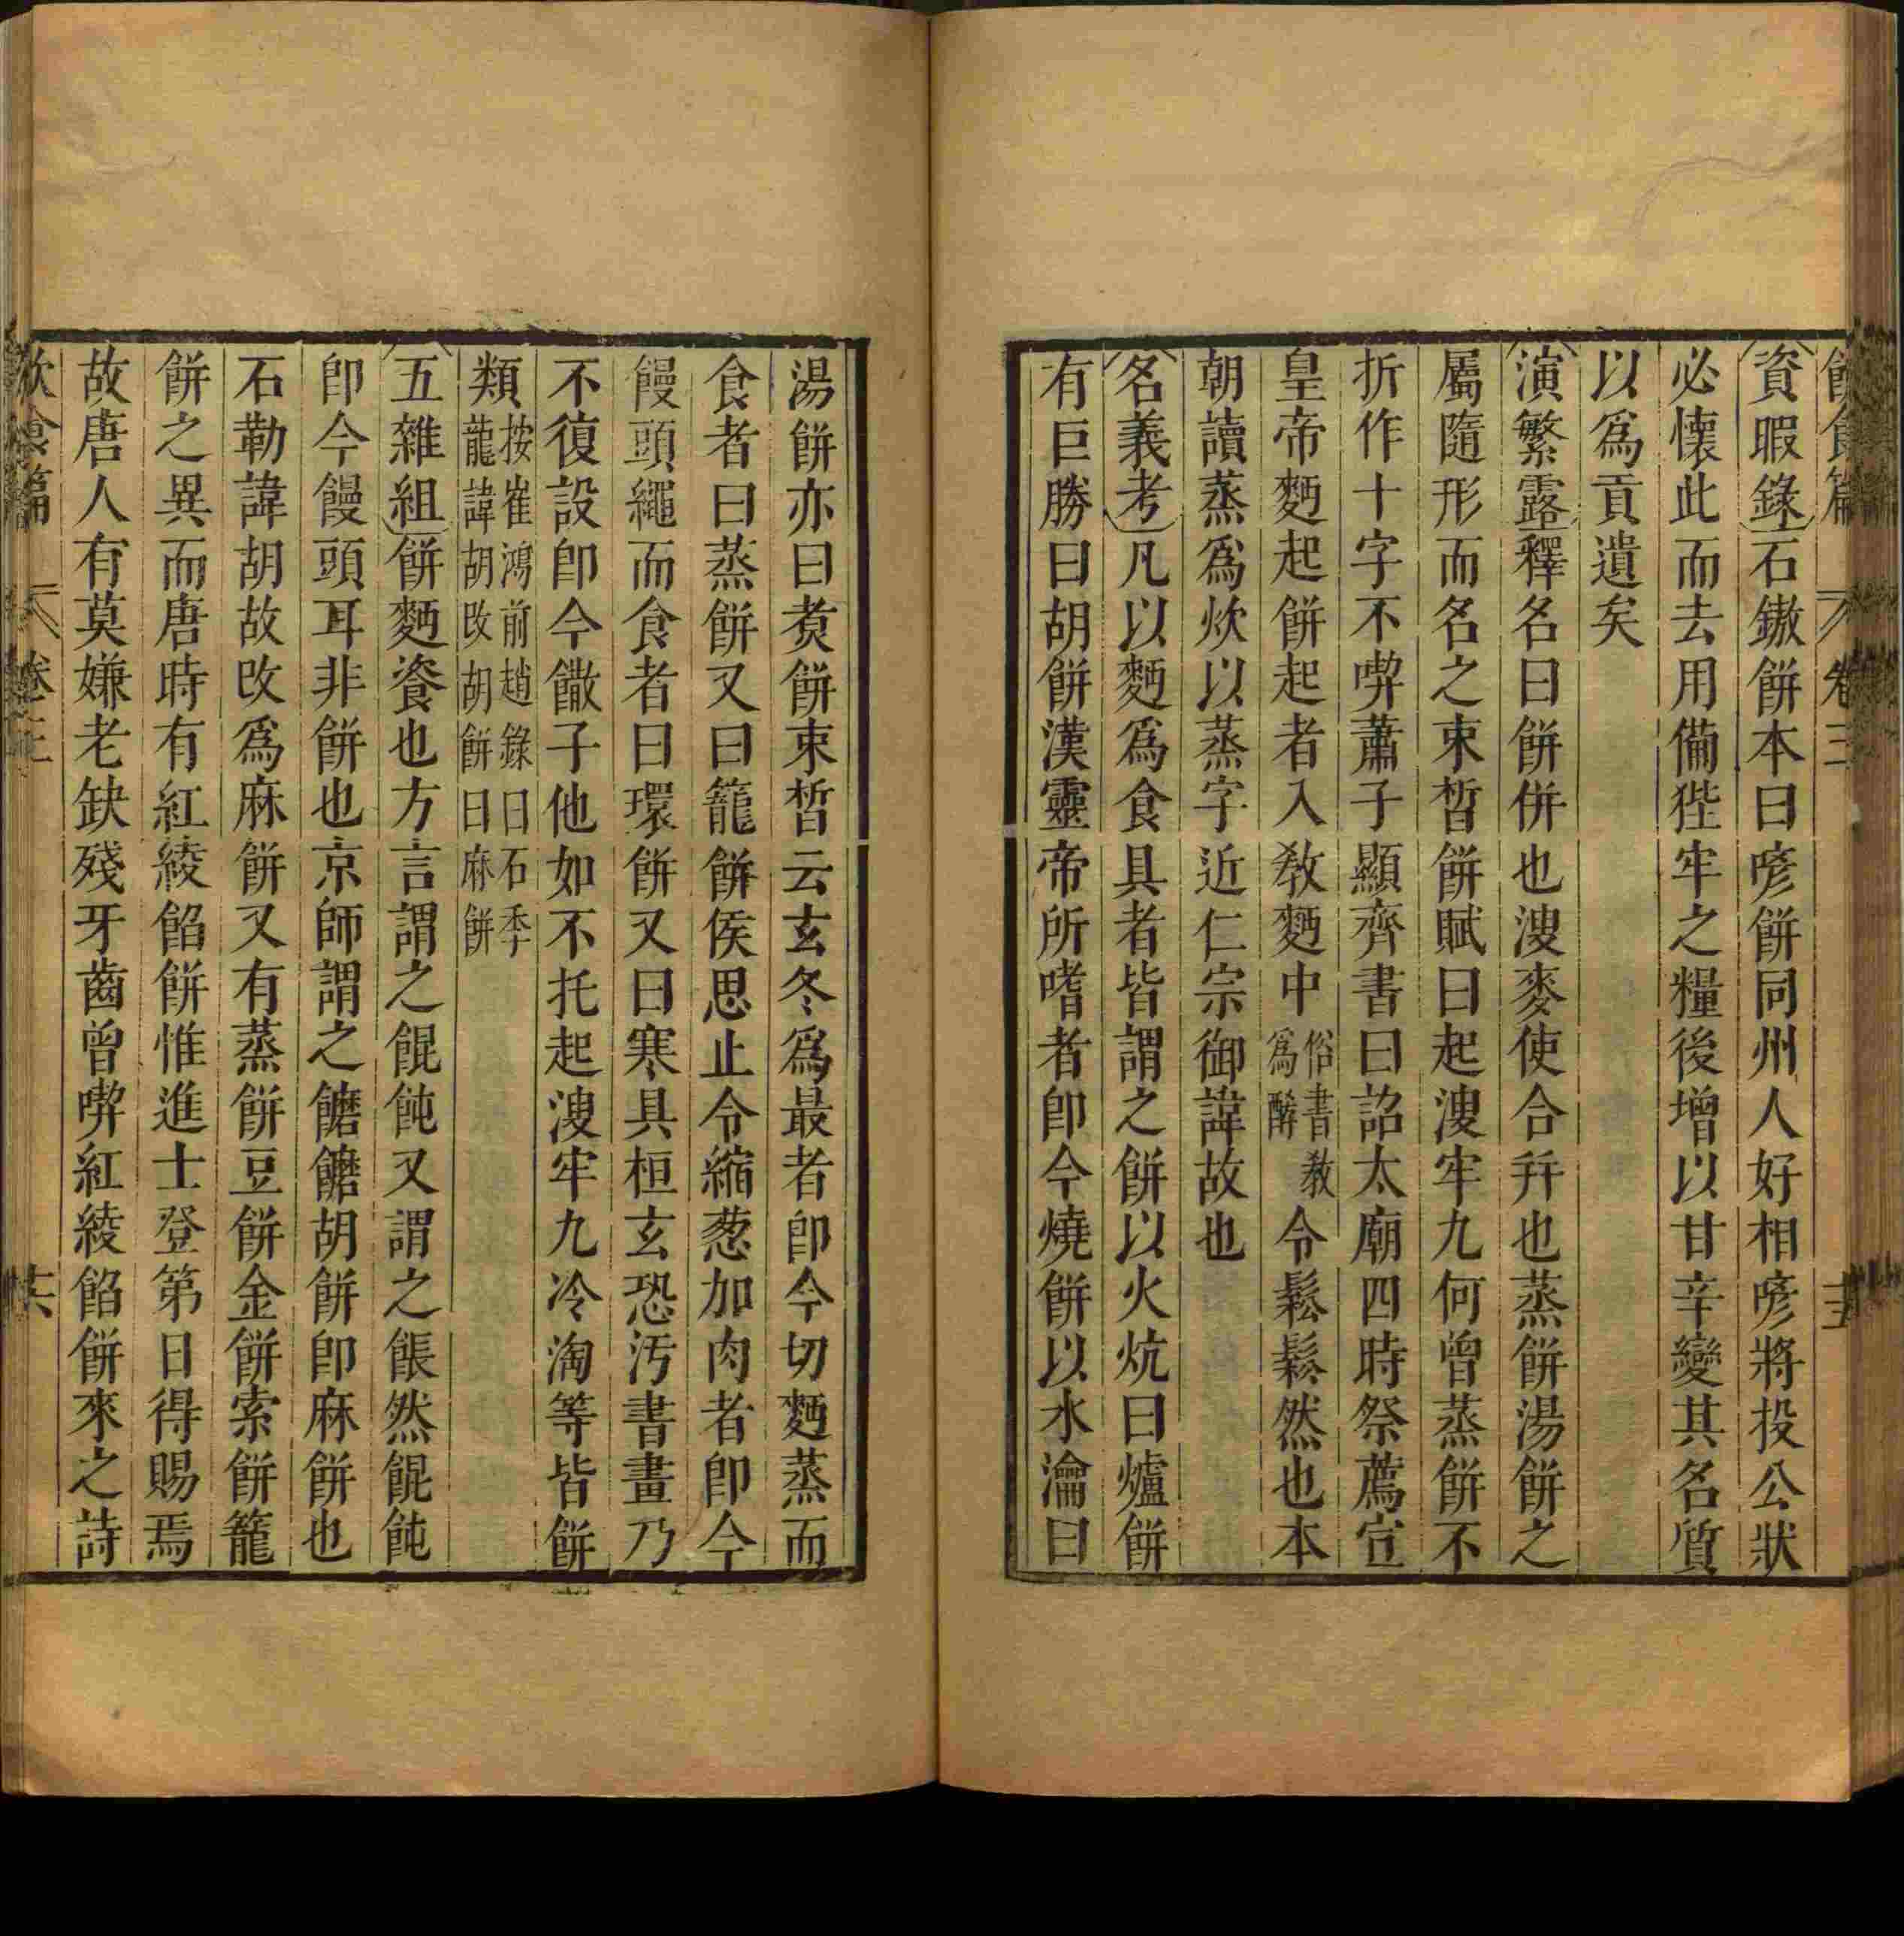 資暇錄石鏉餅本曰喭餅同州人好相喭將投公狀
必懷此而去用備狴牢之糧後增以甘辛變其名質
以爲貢遺矣
演繁露釋名曰餅併也溲麥使合并也蒸餅湯餅之
屬隨形而名之束晳餅賦曰起溲牢九何曾蒸餅不
折作十字不㗖蕭子顯齊書曰詔太廟四時祭薦宣
皇帝麪起餅起者入敎麪中俗書敎爲酵令鬆鬆然也本
朝讀蒸爲炊以蒸字近仁宗御諱故也
名義考凡以麪爲食具者皆謂之餅以火炕曰爐餅
有巨勝曰胡餅漢靈帝所嗜者卽今燒餅以水瀹曰
湯餅亦曰煑餅束晳云玄冬爲最者卽今切麪蒸而
食者曰蒸餅又曰籠餅侯思止令縮葱加肉者卽今
饅頭繩而食者曰環餅又曰寒具桓玄恐汚書畫乃
不復設卽今饊子他如不托起溲牢九冷淘等皆餅
類按崔鴻前趙錄曰石季龍諱胡改胡餅曰麻餅
五雜組餅麪餈也方言謂之餛飩又謂之餦然餛飩
卽今饅頭耳非餅也京師謂之饝饝胡餅卽麻餅也
石勒諱胡故改爲麻餅又有蒸餅豆餅金餅索餅籠
餅之異而唐時有紅綾餡餅惟進士登第日得賜焉
故唐人有莫嫌老缺殘牙齒曾㗖紅綾餡餅來之詩
飲食篇 卷三